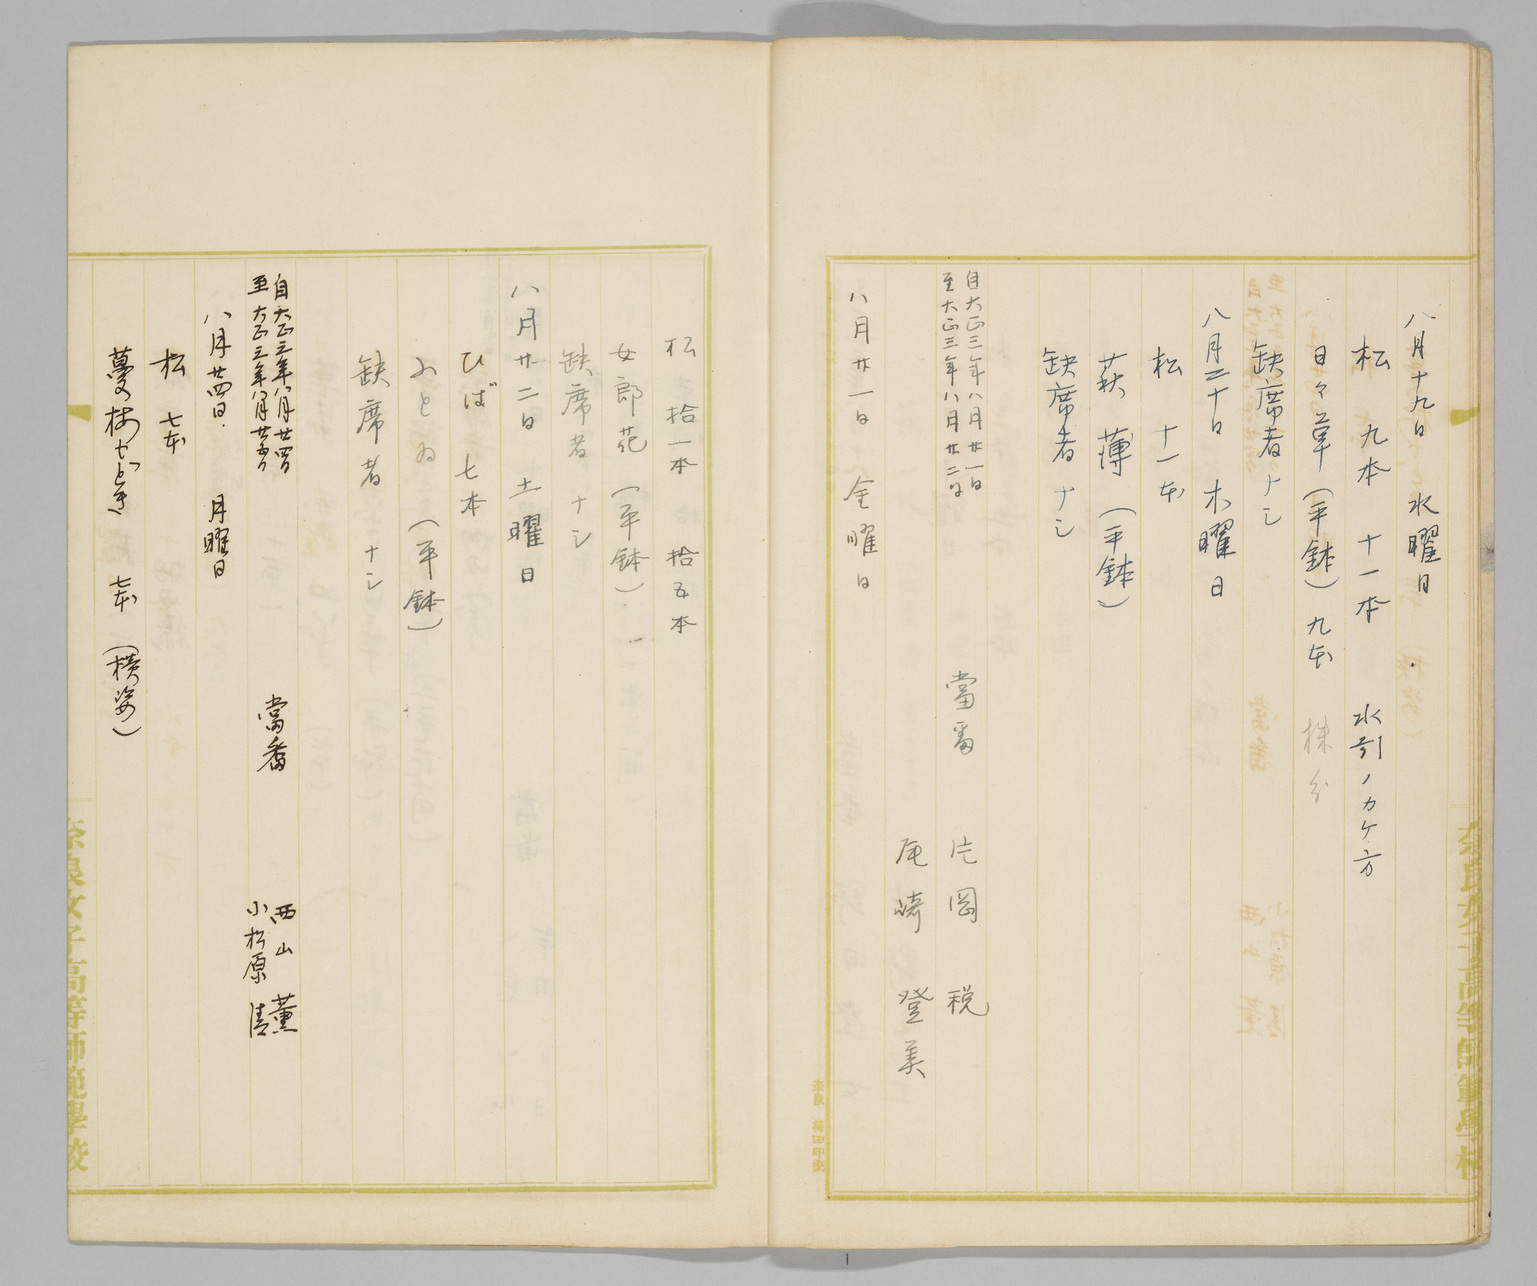 八月十九日　水曜日
松　九本　十一本　水引ノカケ方
日々草（平鉢）九本　株分
缺席者ナシ
八月二十日　木曜日
松　十一本
萩　薄（平鉢）
缺席者ナシ
自大正三年八月廿一日
至大正三年八月廿二日
當番　片岡　税
尾崎　登美
八月廿一日　金曜日
松　拾一本　拾五本
女郎花（平鉢）
缺席者ナシ
八月廿二日　土曜日
ひば　七本
ふとゐ（平鉢）
缺席者ナシ
自大正三年八月廿四日
至大正三年八月廿五日
當番　西山　薫
小松原　清
八月廿四日　月曜日
松　七本
蔓梅もどき　七本（横姿）
奈良女子高等師範學校
奈良女子高等師範學校